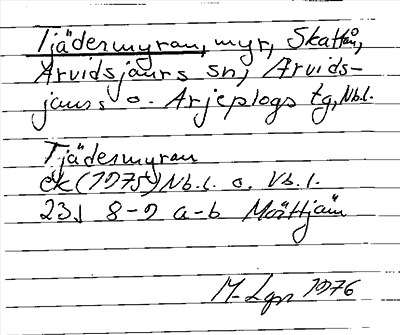 Tjädermyran, myr, Skattån,
Arvidsjaurs sn, Arvids-
jaurs o. Arjeplogs tg, Nb.l.
Tjädermyran
ek (1975) Nb.l. o. Vb.l.
23J 8-9 a-b
M-Lgn 1976